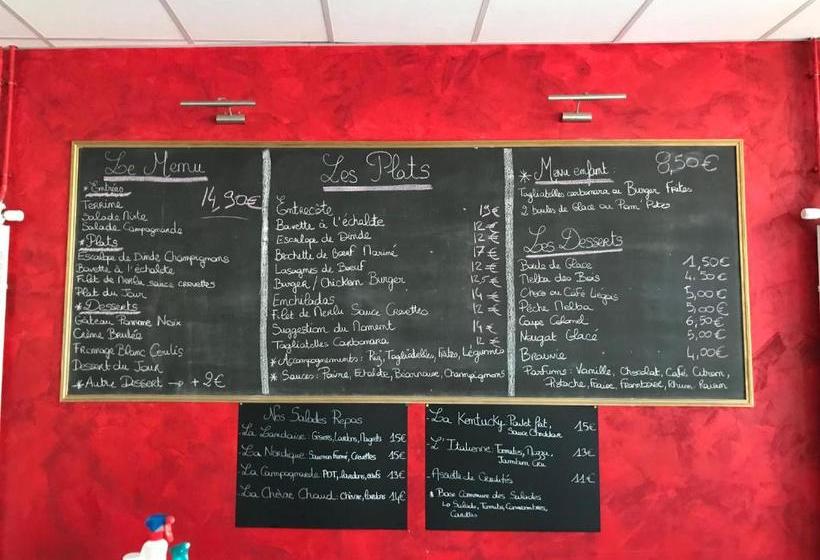 Le Menu
14,90€
* Entrées
Terrine
Salade Mixte
Salade Campagnarde
* Plats
Escalope de Dinde Champignons
Bavette à l'échalote
Filet de Merlu sauce crevettes
Plat du Jour
* Desserts
Gâteau Pomme Noix
Crème Brulée
Fromage Blanc Coulis
Dessert du Jour
* Autre Dessert → + 2€
Les Plats
Entrecôte 19€
Bavette à l'échalote 12€
Escalope de Dinde 12€
Brochette de Bœuf Mariné 17€
Lasagnes de Bœuf 12€
Burger / Chicken Burger 12,5€
Enchiladas 14€
Filet de Merlu Sauce Crevettes 12€
Suggestion du Moment 14€
Tagliatelles Carbonara 12€
* Accompagnements : Riz, Tagliatelles, Frites, Légumes
* Sauces : Poivre, Echalote, Béarnaise, Champignons
* Menu enfant : 8,50€
Tagliatelles carbonara ou Burger Frites
2 boules de Glace ou Pom'Potes
Les Desserts
Boule de Glace 1,50€
Melba des Bois 4.50€
Choco ou Café Liégois 5,00€
Pêche Melba 5,00€
Coupe Colonel 6,50€
Nougat Glacé 5,00€
Brownie 4,00€
Parfums : Vanille, Chocolat, Café, Citron,
Pistache, Fraise, Framboise, Rhum Raisin
Nos Salades Repas
- La Landaise : Gésiers, Lardons, Magrets 15€
- La Nordique : Saumon Fumé, Crevettes 15€
- La Campagnarde : PDT, lardons, œufs 13€
- La Chèvre Chaud : Chèvre, lardons 14€
- La Kentucky : Poulet Pât, 15€
Sauce Cheddar
- L'Italienne : Tomates, Mozza, 13€
Jambon Cru
- Assiette de Crudités 11€
* Base Commune des Salades
↳ Salade, Tomate, Concombres,
Carottes